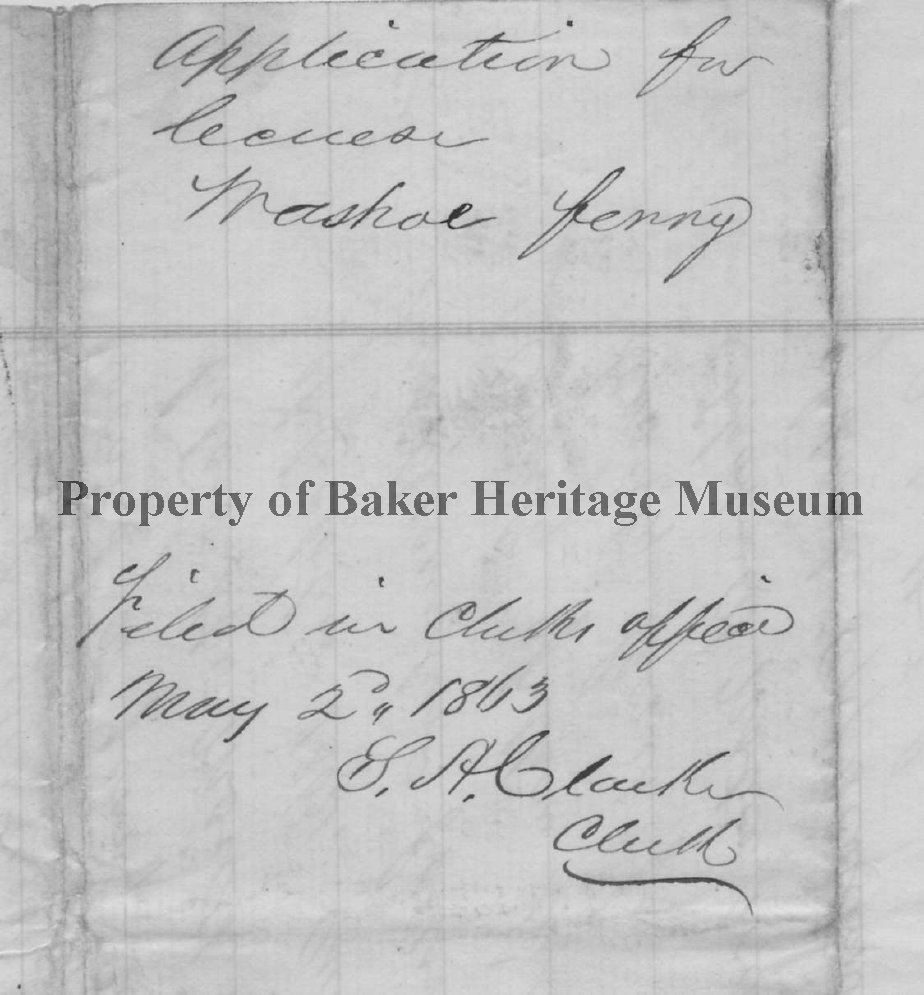 Application for
license
Washoe ferry
Property of Baker Heritage Museum
Filed in Clerks office
May 2d, 1863
S. A. Clarke
Clerk